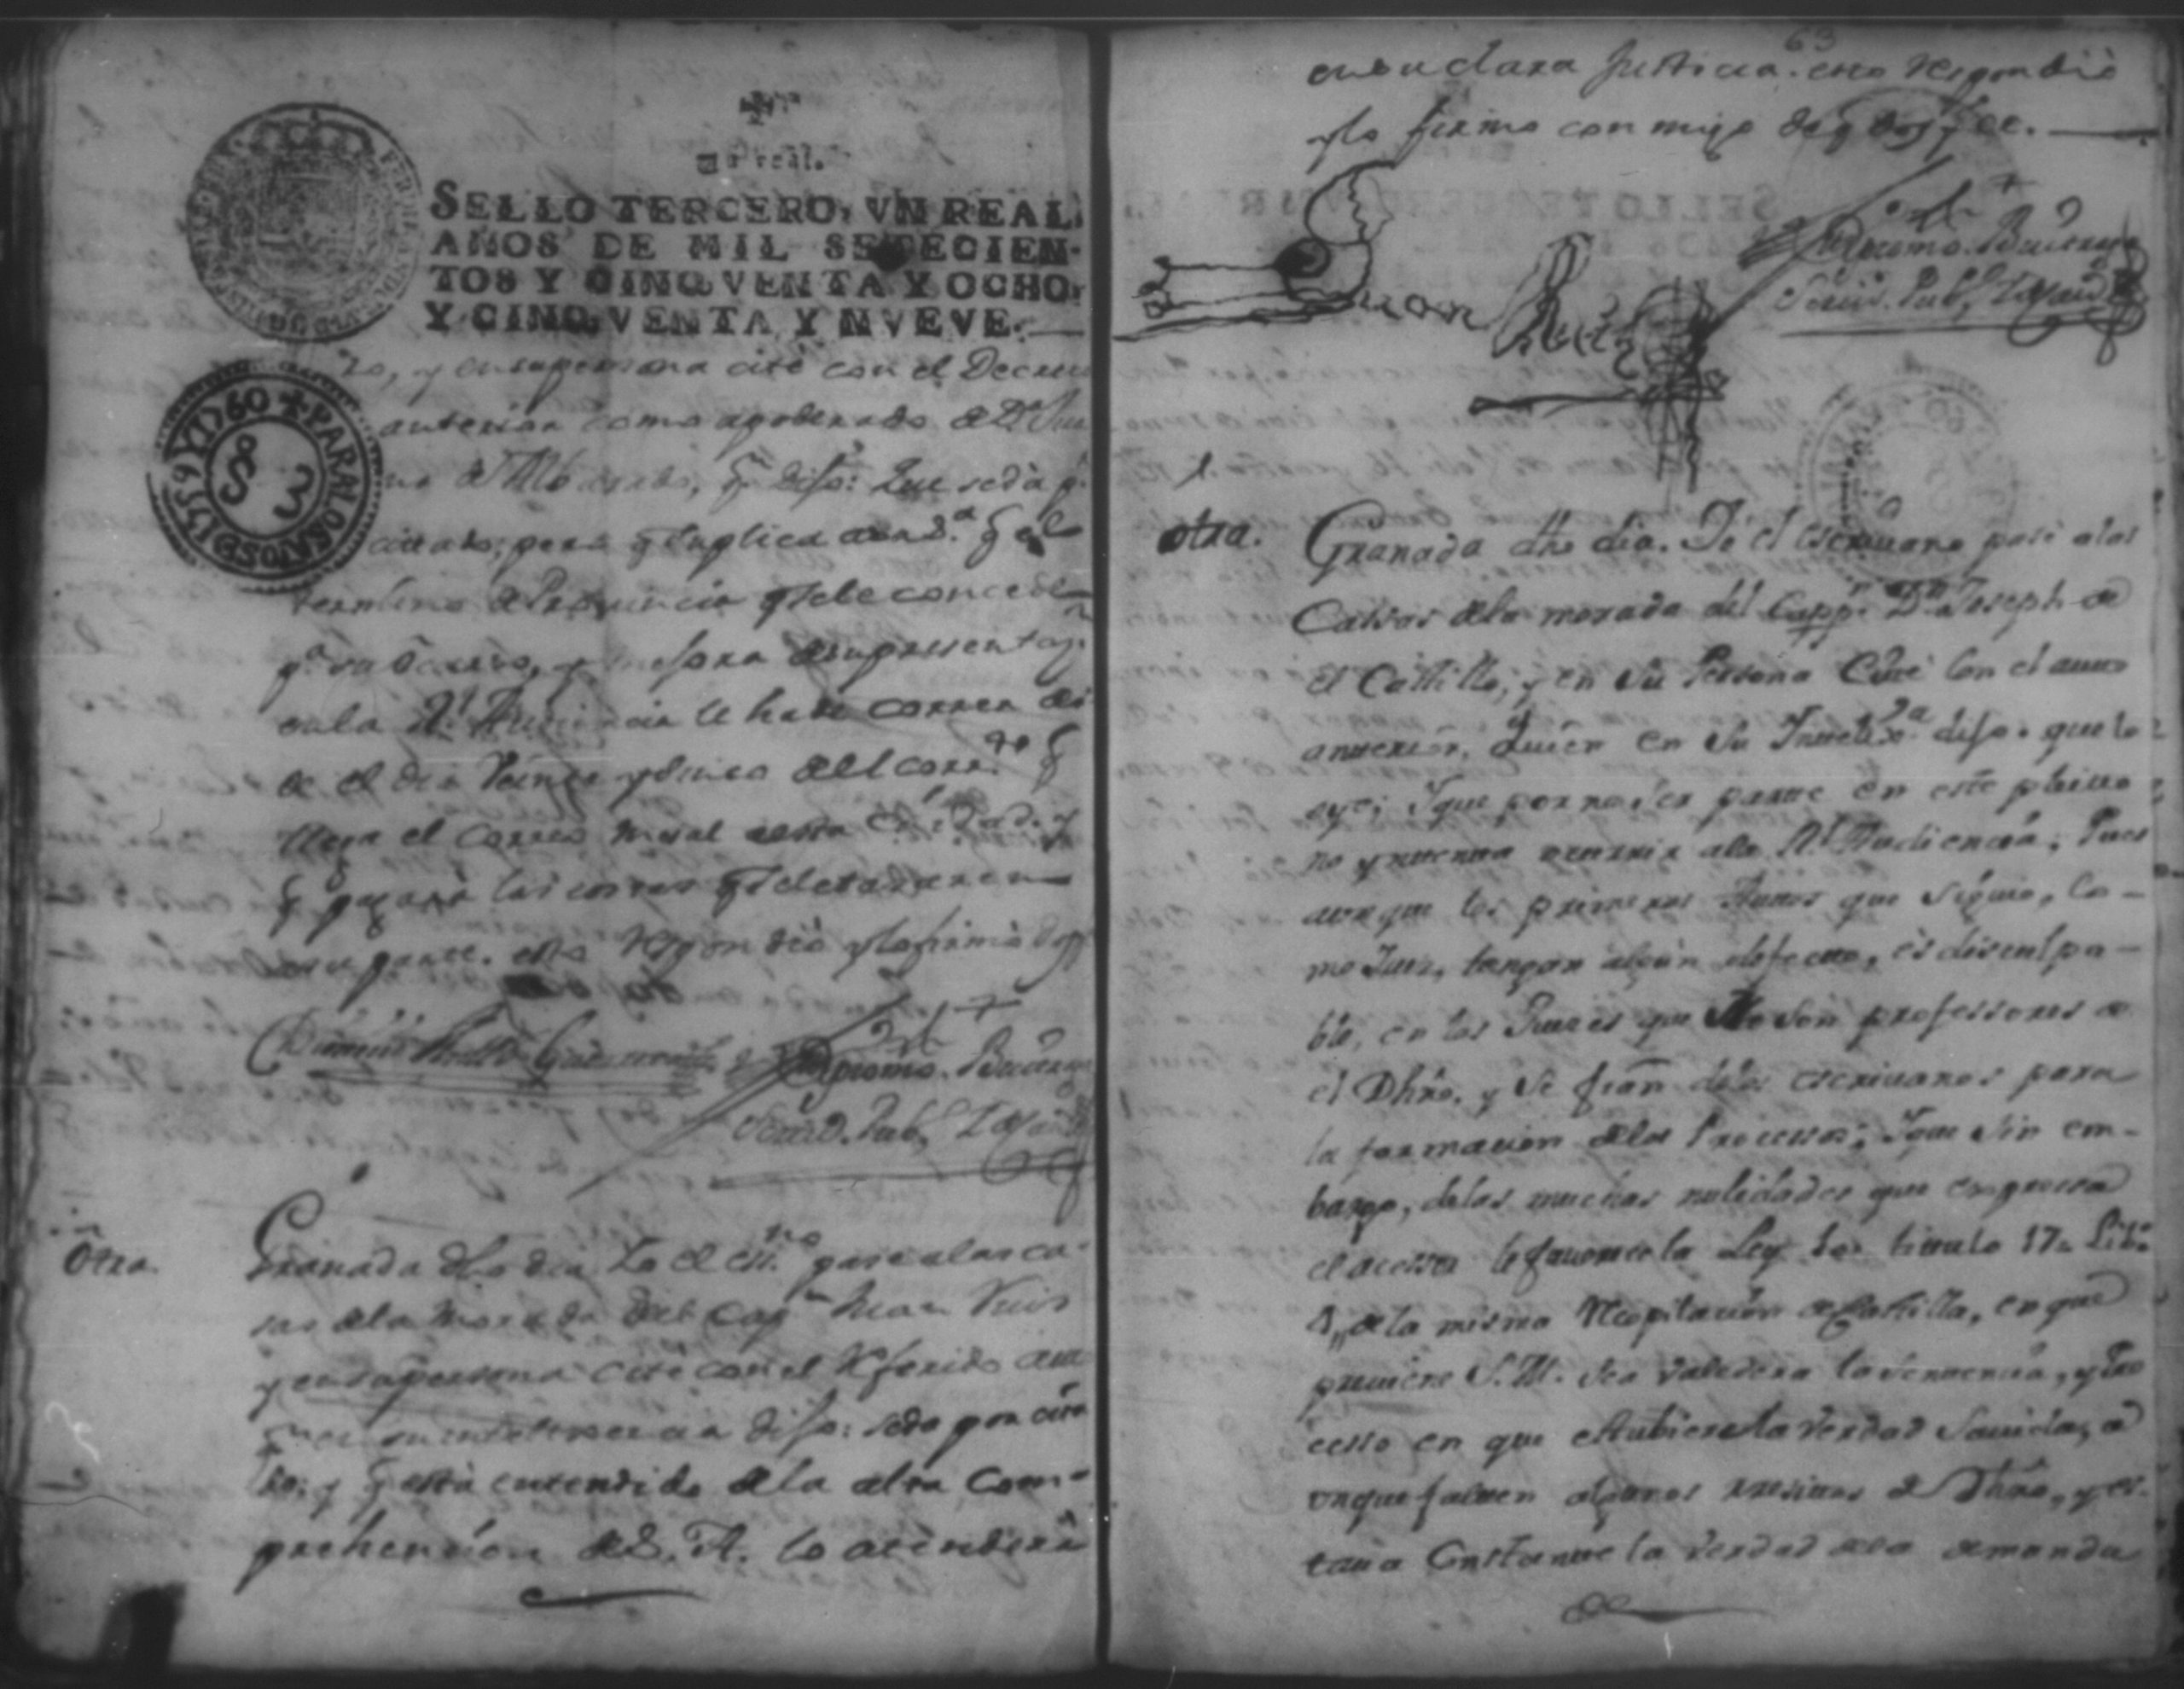 Un real.
SELLO TERCERO, VN REAL,
AÑOS DE MIL SETECIEN-
TOS Y CINQVENTA Y OCHO,
Y CINQVENTA Y NVEVE.
PARA LOS AÑOS DE 1759 Y 1760
S 3
ro, y en su persona citè con el Decreto
anterior como apoderado de Dn
no de Alvarado, q dijo: que se dà pr
citado; pero q suplica a q el
termino de Provincia q se le concede
pr su ocurso, y mejora de su presentazn
en la Rl Audiencia le ha de correr des-
de el dia Veinte y cinco del corrte q
llega el correo mensual a esta Ciudad; y
q pagarà las costas q se le tasaren
a su parte. esto respondiò y lo firmò doy fe
Geronimo
Scrivo. Pubo.
Otra.
Granada dho dia Yo el essno pasè a las ca-
sas de la Morada del Capn Juan Ruis
y en su persona citè con el referido auto
qn en su inteligencia dijo: se dà por cita
do; y q està entendido de la alta Com-
prehencion de S. A. lo atenderà
63
en su clara Justicia. esto respondiò
y lo firmo con migo de q doy fee.
Juan Ruiz
Geronimo
Scrivo. Pubo.
otra.
Granada dho dia. Yo el escrivano pasè a las
Cassas de la morada del Cappn Dn Joseph de
el Castillo, y en su Persona Citè con el auto
anterior, Quien en su Inteliga dijo. que lo
oye; Y que por no ser parte en este pleito
no yntenta ocurrir a la Rl Audiencia; Pues
aunque los primeros Autos que siguio, Co-
mo Juez, tengan algun defecto, es disculpa-
ble, en los Jueces que No son professores de
el Dhro. y se fian de los escrivanos para
la formacion de los Processos; Y que sin em-
bargo, de las muchas nulidades que expressa
el acessor le favorece la Ley 10. titulo 17. Libro
4, de la misma Recopilacion de Castilla, en que
previene S. M. sea valedera la sentencia, y Pro
cesso en que estubiere la verdad Savida, a
unque falten algunos requisitos de Dhro, y es-
tava Constante la verdad de la demanda